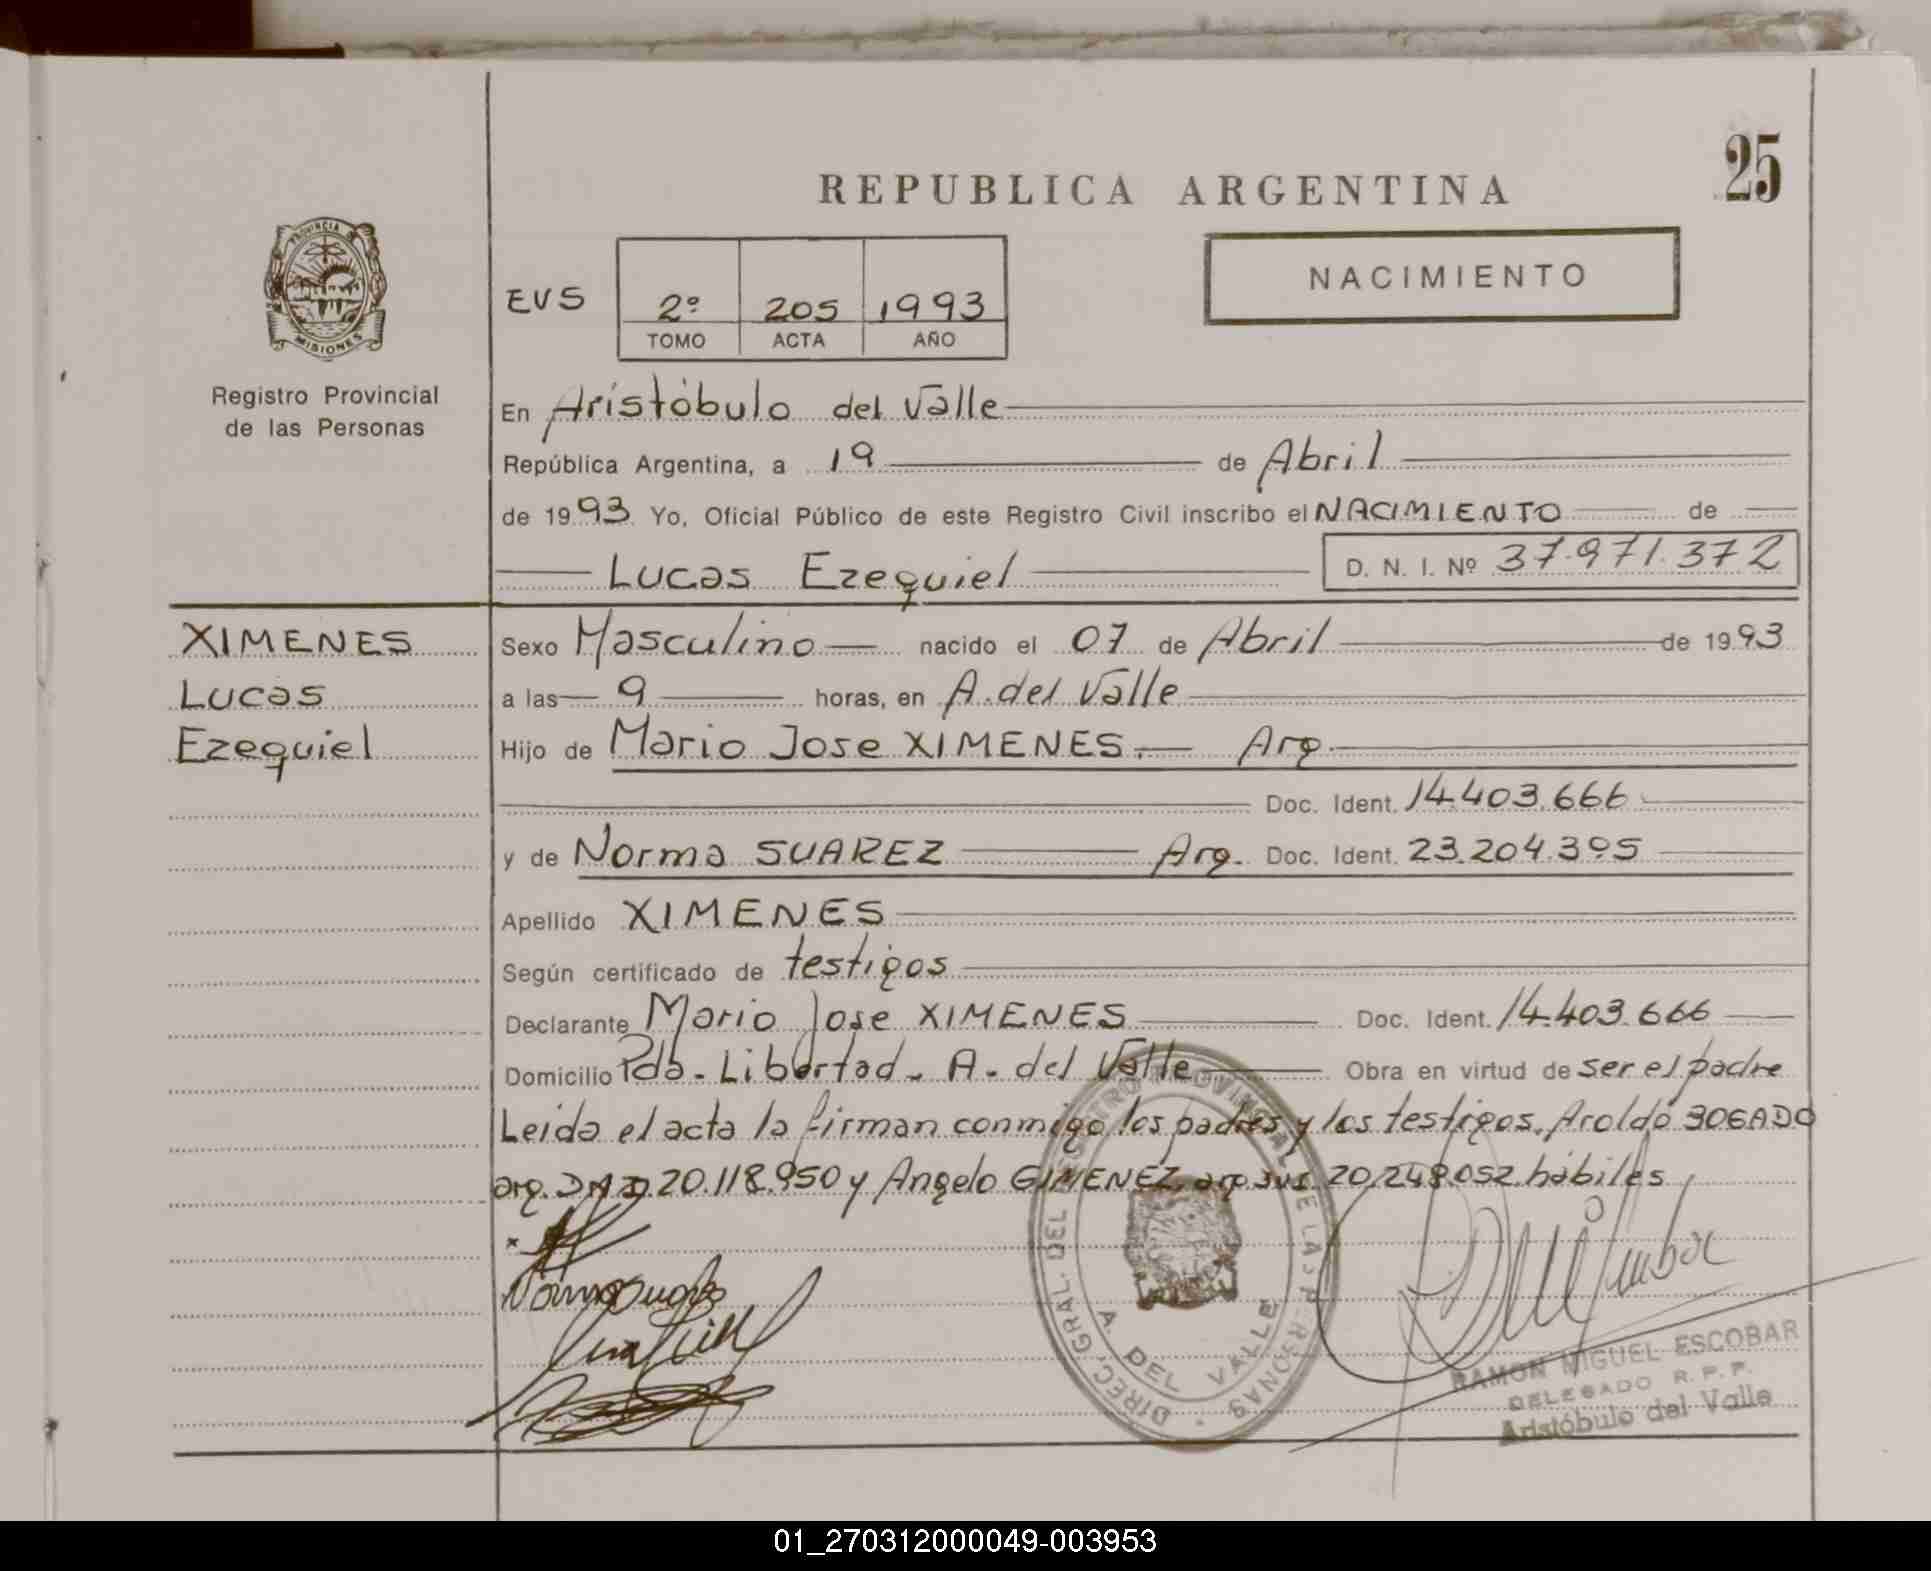 25
REPUBLICA ARGENTINA
PROVINCIA DE
MISIONES
Registro Provincial
de las Personas
NACIMIENTO
EVS
2º 205 1993
TOMO ACTA AÑO
En Aristóbulo del Valle
República Argentina, a 19 de Abril
de 1993 Yo, Oficial Público de este Registro Civil inscribo el NACIMIENTO de
Lucas Ezequiel D. N. I. Nº 37.971.372
XIMENES
Lucas
Ezequiel
Sexo Masculino nacido el 07 de Abril de 1993
a las 9 horas, en A. del Valle
Hijo de Mario Jose XIMENES. Arg.
Doc. Ident. 14.403.666
y de Norma SUAREZ Arg. Doc. Ident. 23.204.395
Apellido XIMENES
Según certificado de testigos
Declarante Mario Jose XIMENES Doc. Ident. 14.403.666
Domicilio Pda. Libertad. A. del Valle Obra en virtud de ser el padre
Leida el acta la firman conmigo los padres y los testigos, Aroldo
arg. 20.118.950 y Angelo GIMENEZ, arg. 20.248.052 hábiles
DIREC. GRAL. DEL REGISTRO PROVINCIAL DE LAS PERSONAS
A. DEL VALLE
RAMON MIGUEL ESCOBAR
DELEGADO R. P. P.
Aristóbulo del Valle
01_270312000049-003953